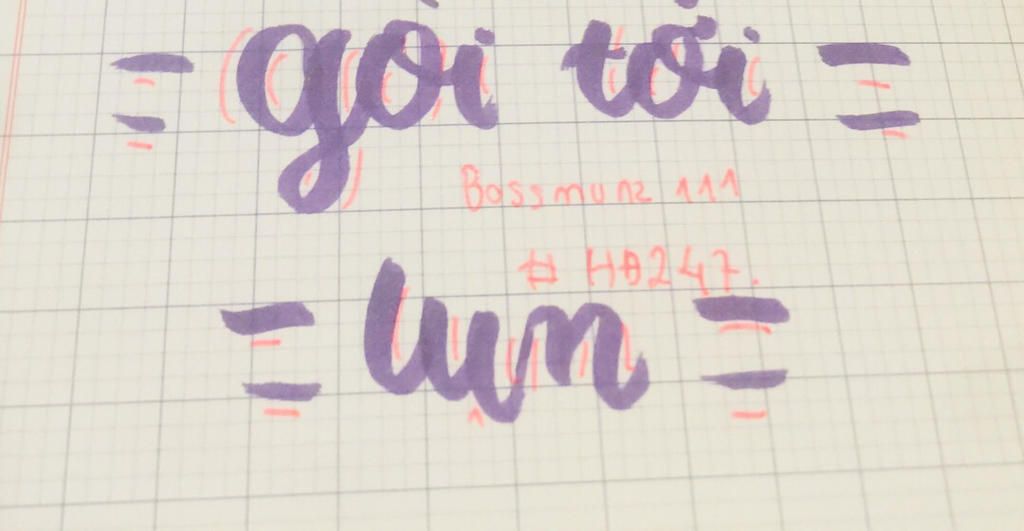 = gòi tới =
Bossmunz 111
# HĐ247.
= lun =